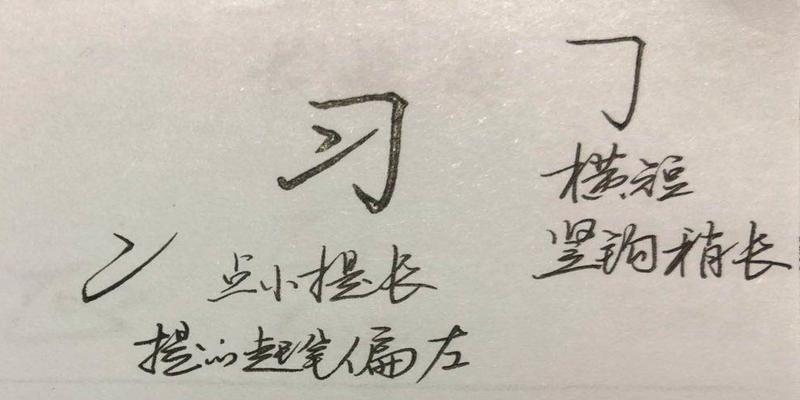 习
㇆
横短
竖钩稍长
冫
点小提长
提的起笔偏左